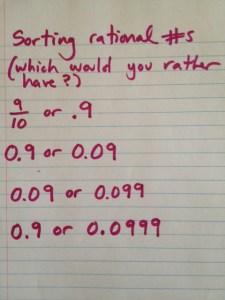 Sorting rational #s
(which would you rather
have?)
9/10 or .9
0.9 or 0.09
0.09 or 0.099
0.9 or 0.0999